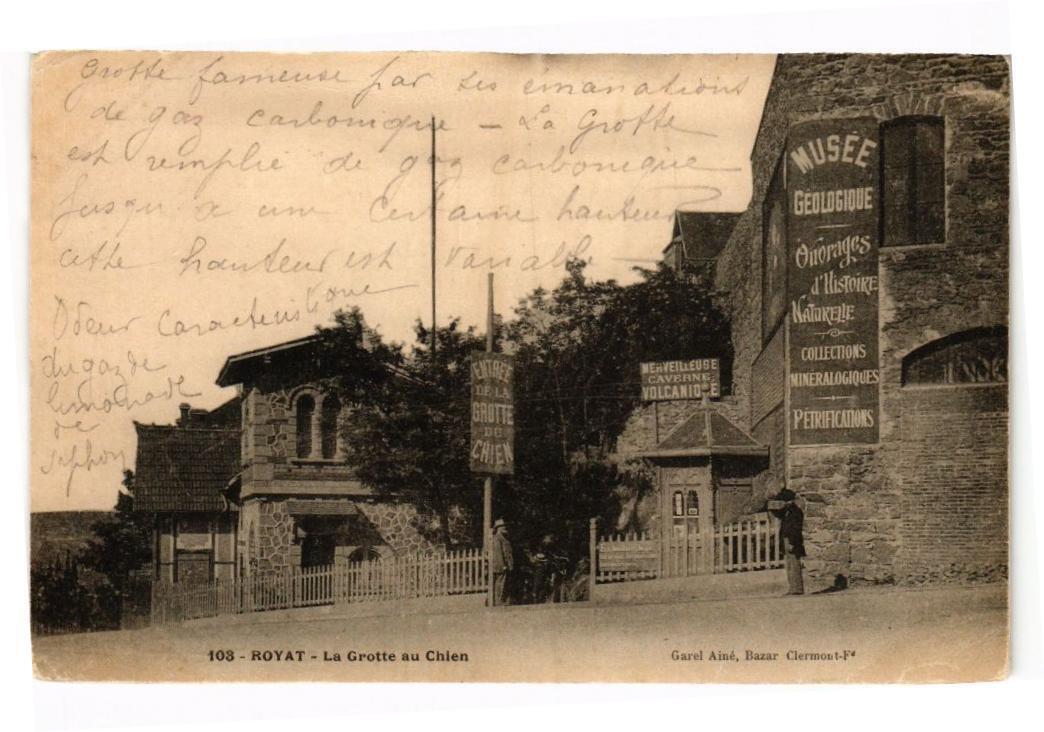 Grotte fameuse par ses émanations
de gaz carbonique – La Grotte
est remplie de gaz carbonique
jusqu'à une certaine hauteur
cette hauteur est variable –
Odeur caractéristique
du gaz de
limonade
de
siphon
MUSÉE
GÉOLOGIQUE
Ouvrages
d'Histoire
Naturelle
COLLECTIONS
MINÉRALOGIQUES
PÉTRIFICATIONS
ENTRÉE
DE LA
GROTTE
DU
CHIEN
MERVEILLEUSE
CAVERNE
VOLCANIQUE
103 - ROYAT - La Grotte au Chien
Garel Ainé, Bazar Clermont-Fd